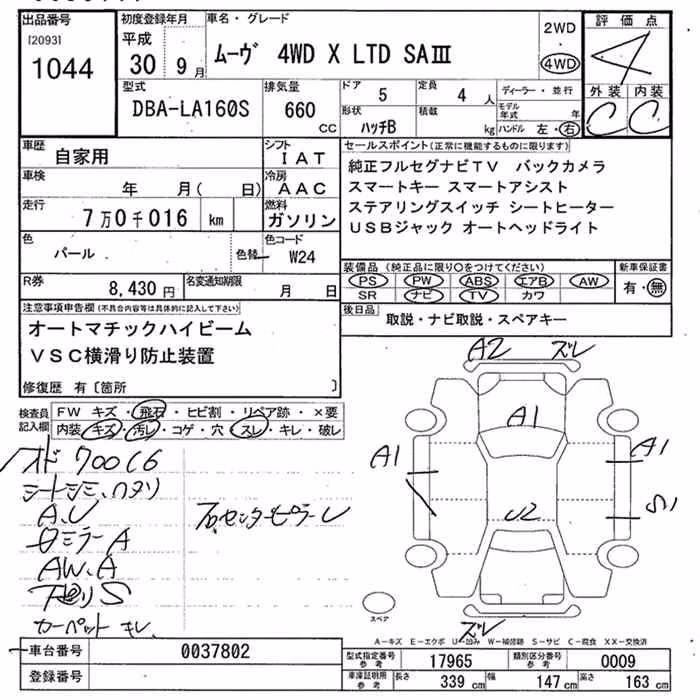 出品番号
[2093]
1044
初度登録年月
平成
30 9月
車名・グレード
ムーヴ 4WD X LTD SAⅢ
2WD
4WD
評価点
4
外装 内装
C C
型式
DBA-LA160S
排気量
660 CC
ドア 5
定員 4 人
形状 ハッチB
積載 kg
ディーラー・並行
モデル年式 年
ハンドル 左・右
車歴
自家用
シフト
IAT
車検
年 月( 日)
冷房
AAC
走行
7万0千016 km
燃料
ガソリン
色
パール
色替
色コード
W24
R券
8,430円
名変通知期限
月 日
セールスポイント(正常に機能するものに限ります)
純正フルセグナビTV バックカメラ
スマートキー スマートアシスト
ステアリングスイッチ シートヒーター
USBジャック オートヘッドライト
装備品(純正品に限り○をつけてください)
PS PW ABS エアB AW
SR ナビ TV カワ
新車保証書
有・無
後日品
取説・ナビ取説・スペアキー
注意事項申告欄(不具合内容等は具体的に記入して下さい)
オートマチックハイビーム
VSC横滑り防止装置
修復歴 有〔箇所 〕
検査員記入欄
FW キズ・飛石・ヒビ割・リペア跡・×要
内装 キズ・汚レ・コゲ・穴・スレ・キレ・破レ
A2 ズレ
A1
A1
A1
S1
U2
ズレ
70016
シートシミ、
A、U
右センターピラーU
ミラーA
AW、A
下廻りS
カーペットキレ
スペア
A-キズ E-エクボ U-凹み W-補修跡 S-サビ C-腐食 XX-交換済
車台番号
0037802
登録番号
型式指定番号 参考
17965
類別区分番号 参考
0009
車庫証明用 参考
長さ 339 cm
幅 147 cm
高さ 163 cm